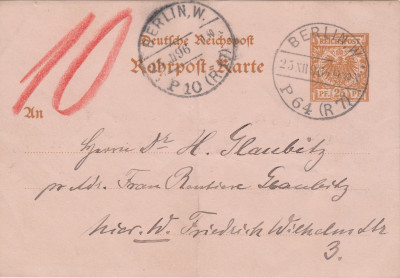 10
BERLIN, W.
96
P 10 (R.
Deutsche Reichspost
Rohrpost-Karte
An
REICHSPOST
25 PF
BERLIN, W.
23 XII
P 64 (R
Herrn Dr H. Glaubitz
pr. Adr. Frau Rentiere Glaubitz
hier. W. Friedrich Wilhelmstr
3.